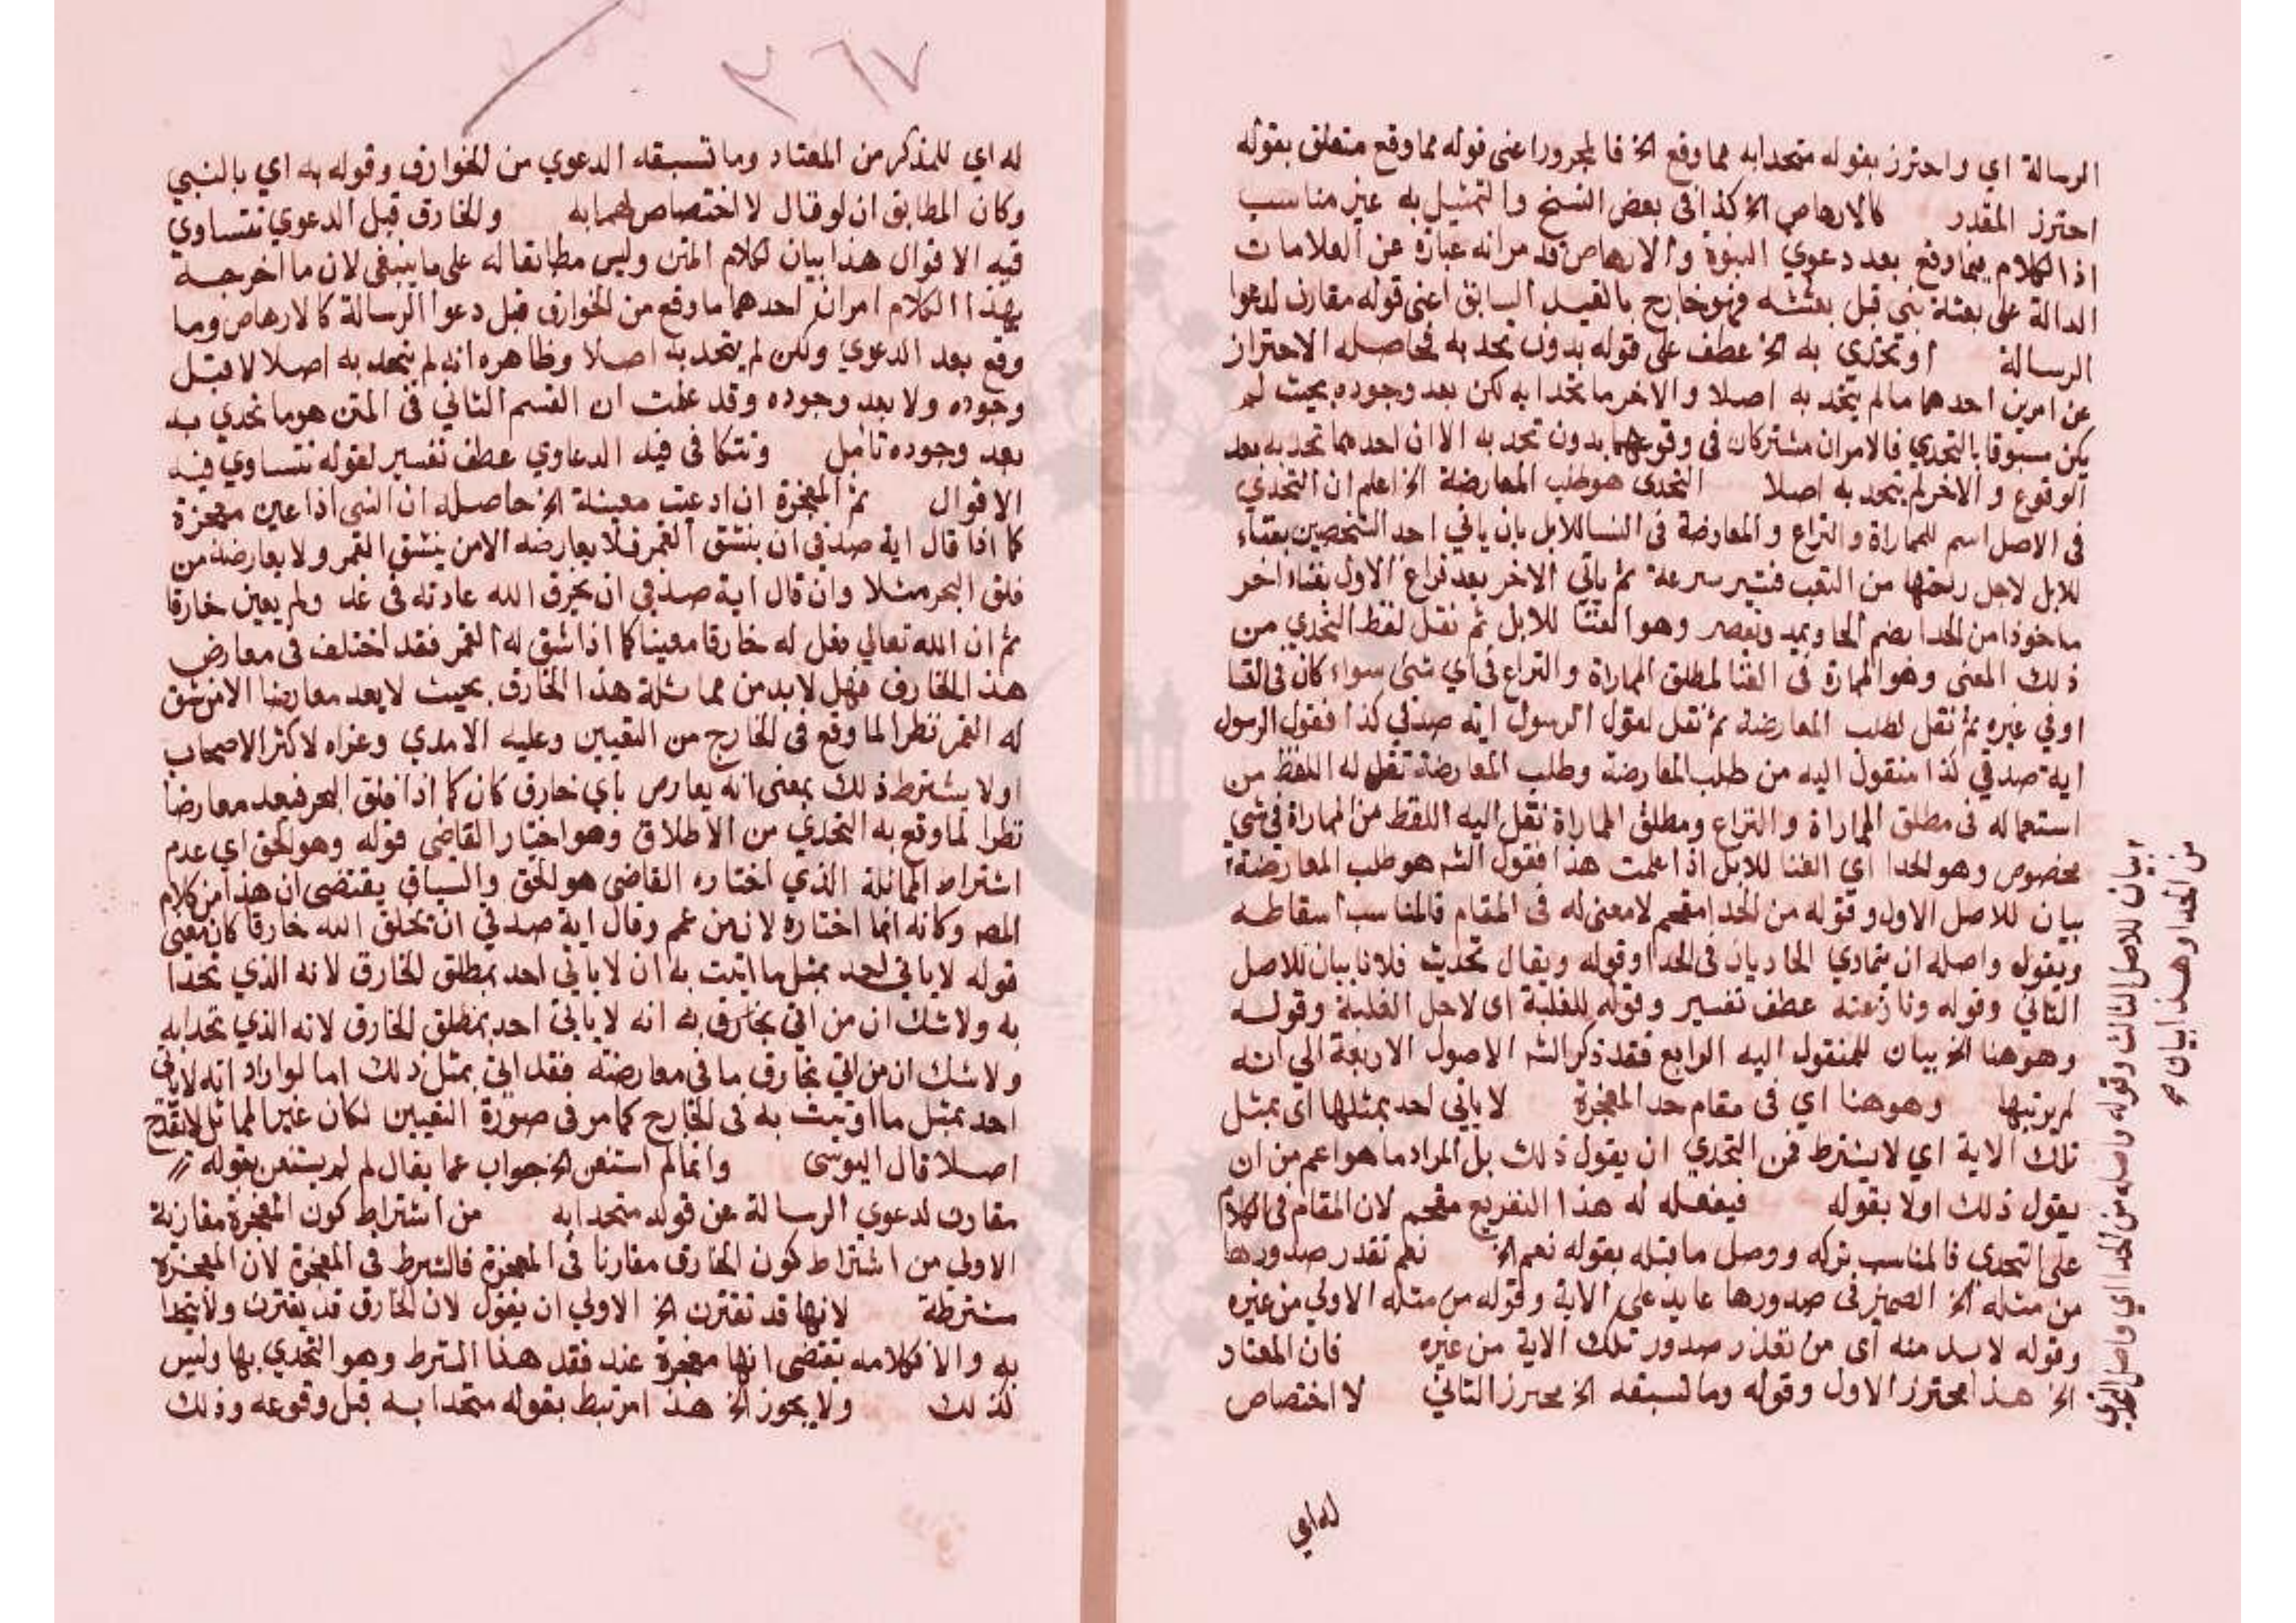 الرسالة اي واحترز بقوله متحدا به مما وقع الخ فالمجرور اعنى قوله مما وقع متعلق بقوله
احترز المقدر كالارهاص الخ كذا فى بعض النسخ والتمثيل به غير مناسب
اذ الكلام فيما وقع بعد دعوي النبوة والارهاص قد مر انه عبارة عن العلامات
الدالة على بعثة نبي قبل بعثته فهو خارج بالقيد السابق اعنى قوله مقارن لدعوا
الرسالة او تحدى به الخ عطف على قوله بدون تحد به فحاصله الاحتراز
عن امرين احدهما مالم يتحد به اصلا والاخر ما تحدا به لكن بعد وجوده بحيث لم
يكن مسبوقا بالتحدي فالامران مشتركان فى وقوعهما بدون تحد به الا ان احدهما تحد به بعد
الوقوع والاخر لم يتحد به اصلا التحدى هو طلب المعارضة الخ اعلم ان التحدي
فى الاصل اسم للمماراة والنزاع والمعارضة فى الغنا للابل بان ياتي احد الشخصين بغناء
للابل لاجل ريحها من التعب فتسير سرعة ثم ياتي الاخر بعد فراغ الاول بغناء اخر
ماخوذا من الحدا بضم الحا ويمد ويقصر وهو الغنا للابل ثم نقل لفظ التحدي من
ذلك المعنى وهو المماراة فى الغنا لمطلق المماراة والنزاع فى اي شئ سواء كان فى الغنا
اوفي غيره ثم نقل لطلب المعارضة ثم نقل لقول الرسول اية صدقي كذا فقول الرسول
اية صدقي كذا منقول اليه من طلب المعارضة وطلب المعارضة نقل له اللفظ من
استعماله فى مطلق المماراة والنزاع ومطلق المماراة نقل اليه اللفظ من المماراة فى شي
مخصوص وهو الحدا اي الغنا للابل اذا علمت هذا فقول الشه هو طلب المعارضة
بيان للاصل الاول وقوله من الحدا مقحم لا معنى له فى المقام فالمناسب اسقاطه
ويقوله واصله ان يتمادي الحاديان فى الحدا وقوله ويقال تحديت فلانا بيان للاصل
الثاني وقوله ونازعته عطف تفسير وقوله للغلبة اى لاجل الغلبة وقوله
وهو هنا الخ بيان للمنقول اليه الرابع فقد ذكر الشه الاصول الاربعة الي انه
لم يرتبها وهو هنا اي فى مقام حد المعجزة لا ياتي احد بمثلها اى بمثل
تلك الاية اي لا يشترط فى التحدي ان يقول ذلك بل المراد ما هو اعم من ان
يقول ذلك اولا بقوله فيفعله له هذا التفريع مقحم لان المقام فى الكلام
على التحدى فالمناسب تركه ووصل ما قبله بقوله نعم الخ نعم تقدر صدورها
من مثله الخ الضمير فى صدورها عايد على الاية وقوله من مثله الاولي من غيره
وقوله لابد منه اى من تعذر صدور تلك الاية من غيره فان المعتاد
الخ هذا محترز الاول وقوله وما تسبقه الخ محترز الثاني لا اختصاص
له اي
بيان للاصل الثالث وقوله واصله من الحدا اي واصل التحدي
من الحدا وهذا بيان
٣٦٧
له اي للمذكر من المعتاد وما تسبقه الدعوي من الخوارق وقوله به اي بالنبي
وكان المطابق ان لو قال لا اختصاص لهما به والخارق قبل الدعوي تتساوي
فيه الاقوال هذا بيان لكلام المتن وليس مطابقا له على ما ينبغى لان ما اخرجه
بهذا الكلام امران احدهما ما وقع من الخوارق قبل دعوا الرسالة كالارهاص وما
وقع بعد الدعوي ولكن لم يتحد به اصلا وظاهره انه لم يتحد به اصلا لا قبل
وجوده ولا بعد وجوده وقد علمت ان القسم الثاني فى المتن هو ما تحدي به
بعد وجوده تامل وتتكافى فيه الدعاوي عطف تفسير لقوله تتساوي فيه
الاقوال ثم المعجزة ان ادعت معينة الخ حاصله ان النبى اذا عين معجزة
كما اذا قال اية صدقي ان ينشق القمر فلا يعارضه الا من ينشق القمر ولا يعارضه من
فلق البحر مثلا وان قال اية صدقي ان يخرق الله عادته فى غد ولم يعين خارقا
ثم ان الله تعالي فعل له خارقا معينا كما اذا شق له القمر فقد اختلف فى معارض
هذا الخارق فهل لابد من مماثلة هذا الخارق بحيث لا يعد معارضا الا من شق
له القمر نظرا لما وقع فى الخارج من التعيين وعليه الامدي وعزاه لاكثر الاصحاب
اولا يشترط ذلك بمعنى انه يعارض باي خارق كان كما اذا فلق البحر فيعد معارضا
نظرا لما وقع به التحدي من الاطلاق وهو اختيار القاضي قوله وهو الحق اي عدم
اشتراط المماثلة الذي اختاره القاضى هو الحق والسياق يقتضى ان هذا من كلام
المصه وكانه انما اختاره لان من عمم وقال اية صدقي ان يخلق الله خارقا كان معنى
قوله لا ياتي احد بمثل ما اتيت به ان لا ياتي احد بمطلق الخارق لانه الذي تحدا
به ولا شك ان من اتى بخارق به انه لا ياتى احد بمطلق الخارق لانه الذي تحدا به
ولا شك ان من اتي بخارق ما فى معارضته فقد اتى بمثل ذلك اما لو اراد انه لا ياتى
احد بمثل ما اوتيت به فى الخارج كما مر فى صورة التعيين لكان غير المماثل لا يقدح
اصلا قال اليوسى وانما لم استغن الخ جواب عما يقال لم لم يستغن بقوله
مقارن لدعوي الرسالة عن قوله متحدا به من اشتراط كون المعجزة مقارنة
الاولي من اشتراط كون الخارق مقارنا فى المعجزة فالشرط فى المعجزة لان المعجزة
مشترطة لانها قد تقترن الخ الاولي ان يقول لان الخارق قد يقترن ولا يتحدا
به والا فكلامه يقتضى انها معجزة عند فقد هذا الشرط وهو التحدي بها وليس
كذلك ولا يجوز الخ هذا مرتبط بقوله متحدا به قبل وقوعه وذلك